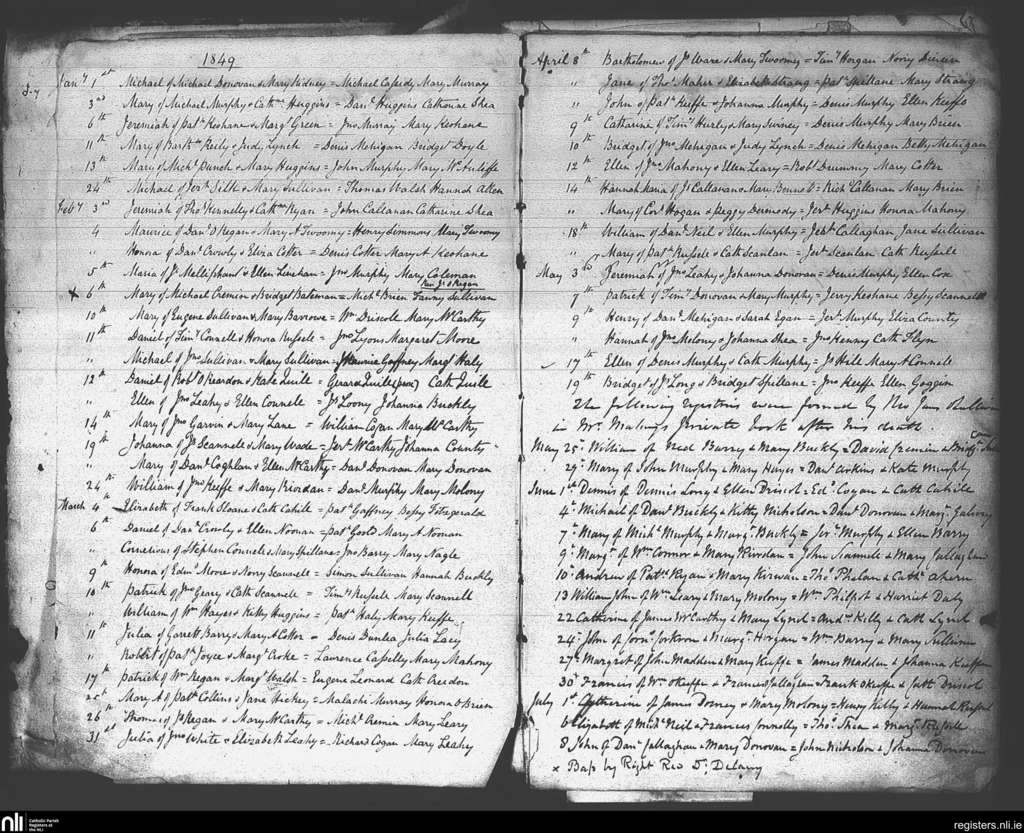 1849
Jany 1st Michael of Michael Donovan & Mary Kidney = Michael Cassidy Mary Murray
3rd Mary of Michael Murphy & Cathn Huggins = Danl Huggins Catharine Shea
6th Jeremiah of Patk Keohane & Margt Green = Jno Murray Mary Keohane
11th Mary of Barthw Reily & Judy Lynch = Denis Mehigan Bridget Doyle
13th Mary of Michl Punch & Mary Huggins = John Murphy Mary McAuliffe
24th Michael of & Mary Sullivan = Thomas Walsh Hannah
Feby 3rd Jeremiah of Thos Kennelly & Cathne Ryan = John Callanan Catharine Shea
4 Maurice of Danl O Regan & Mary A Twoomy = Henry Simmons Mary Twoomy
" Honora of Danl Crowly & Eliza Cotter = Denis Cotter Mary A Keohane
5th Maria of Js & Ellen Linehan = Jno Murphy Mary Coleman
Rev Js O Regan
x 6th Mary of Michael Cremin & Bridget Bateman = Michl Brien Fanny Sullivan
10th Mary of Eugene Sullivan & Mary Barrowe = Wm Driscole Mary McCarthy
11th Daniel of Timy Connell & Honora Russele = Jno Lyons Margaret Moore
" Michael of Jno Sullivan & Mary Sullivan = Maurice Goffney Margt Haly
12th Daniel of Robt O Reardon & Kate Quile = Gerard Quile Cath Quile
" Ellen of Jno Leahy & Ellen Connele = Js Loony Johanna Buckly
14th Mary of Jno Garvin & Mary Lane = William Cogan Mary McCarthy
19th Johanna of Js Scannele & Mary Wade = Jery McCarthy Johanna County
" Mary of Danl Coghlan & Ellen McCarthy = Danl Donovan Mary Donovan
24th William of Jno Keeffe & Mary Riordan = Danl Murphy Mary Molony
March 4th Elizabeth of Frank Sloane & Cath Cahile = Patk Gaffney Bessy Fitzgerald
6th Daniel of Danl Crowly & Ellen Noonan = Patk Gould Mary A Noonan
" Cornelius of Stephen Connele & Mary Spillane = Jno Barry Mary Nagle
9th Honora of Edmd Moore & Nony Scannele = Simon Sullivan Hannah Buckly
10th Patrick of Jno Geary & Cath Scannele = Timy Russele Mary Scannele
" William of Wm Hayes & Kitty Huggins = Patk Haly Mary Keeffe
11th Julia of Garrett Barry & Mary A Cotter = Denis Dunlea Julia Lacy
" Robert of Patk Joyce & Margt Croke = Lawrence Cassidy Mary Mahony
17th Patrick of Wm Regan & Margt Walsh = Eugene Leonard Cath Creedon
25th Mary A of Patk Collins & Jane Hickey = Malachi Murray Honora O Brien
26th Thomas of Js Regan & Mary McCarthy = Michl Cremin Mary Leary
31st Julia of Jno White & Elizabeth Leahy = Richard Cogan Mary Leahy
April 8th Bartholomew of Js Ware & Mary Twoomy = Timy Horgan Nony
" Jane of Thos Maher & Elizabeth Strang = Patk Spillane Mary Strang
" John of Patk Keeffe & Johanna Murphy = Denis Murphy Ellen Keeffe
9th Catharine of Timy Hurly & Mary Swiney = Denis Murphy Mary Brien
10th Bridget of Jno Mehigan & Judy Lynch = Denis Mehigan Betty Mehigan
12th Ellen of Jno Mahony & Ellen Leary = Robt Drummy Mary Cotter
14th Hannah of Js Callanan & Mary = Richd Callanan Mary Brien
" Mary of Cors Hogan & Peggy Dermody = Jery Huggins Honora Mahony
18th William of Danl Neil & Ellen Murphy = Jery Callaghan Jane Sullivan
" Mary of Patk Russele & Cath Scanlan = Jery Scanlan Cath Russele
May 3rd Jeremiah of Jno Leahy & Johanna Donovan = Denis Murphy Ellen Cox
7th Patrick of Timy Donovan & Mary Murphy = Jerry Keohane Bessy Scannell
9th Henry of Danl Mehigan & Sarah Egan = Jery Murphy Eliza County
" Hannah of Jno Molony & Johanna Shea = Jno Kenny Cath Flyn
17th Ellen of Denis Murphy & Cath Murphy = Js Hill Mary A Connele
19th Bridget of Js Long & Bridget Spillane = Jno Keeffe Ellen Goggin
The following registries were formed by Rev James Sullivan
in Mr. private book after his death.
May 25. William of Ned Barry & Mary Buckly = David Cremin & Bridgt
29. Mary of John Murphy & Mary Hayes = Danl Corkins & Kate Murphy
June 1st Dennis of Dennis Long & Ellen Driscol = Edd Cogan & Cath Cahile
4. Michael of Danl Buckly & Kitty Nicholson = Danl Donovan & Margt
7. Mary of Michl Murphy & Margt Buckly = Jery Murphy & Ellen Barry
9. Margt of Wm Connor & Mary Riordan = John Scannele & Mary Callaghan
10. Andrew of Patk Ryan & Mary Kirwan = Thos Phelan & Cathe Ahern
13 William John of Wm Leary & Mary Molony = Wm Philpot & Harriet Daly
22 Catherine of James McCarthy & Mary Lynch = Andw Kelly & Cath Lynch
24. John of Corns Corkoran & Margt Horgan = Wm Barry & Mary Sullivan
27. Margret of John Madden & Mary Keeffe = James Madden & Johanna Keeffe
30 Francis of Wm OKeeffe & Frances Callaghan = Frank OKeeffe & Cath Driscol
July 1st Catherine of James Dorney & Mary Molony = Henry Kelly & Hannah Russel
6 Elizabeth of Michl Neil & Frances Connolly = Thos Shea & Margt Russele
8 John of Danl Callaghan & Mary Donovan = John Nicholson & Johanna Donovan
x Bap by Right Rev Dr Delany
nli Catholic Parish Registers at the NLI
registers.nli.ie